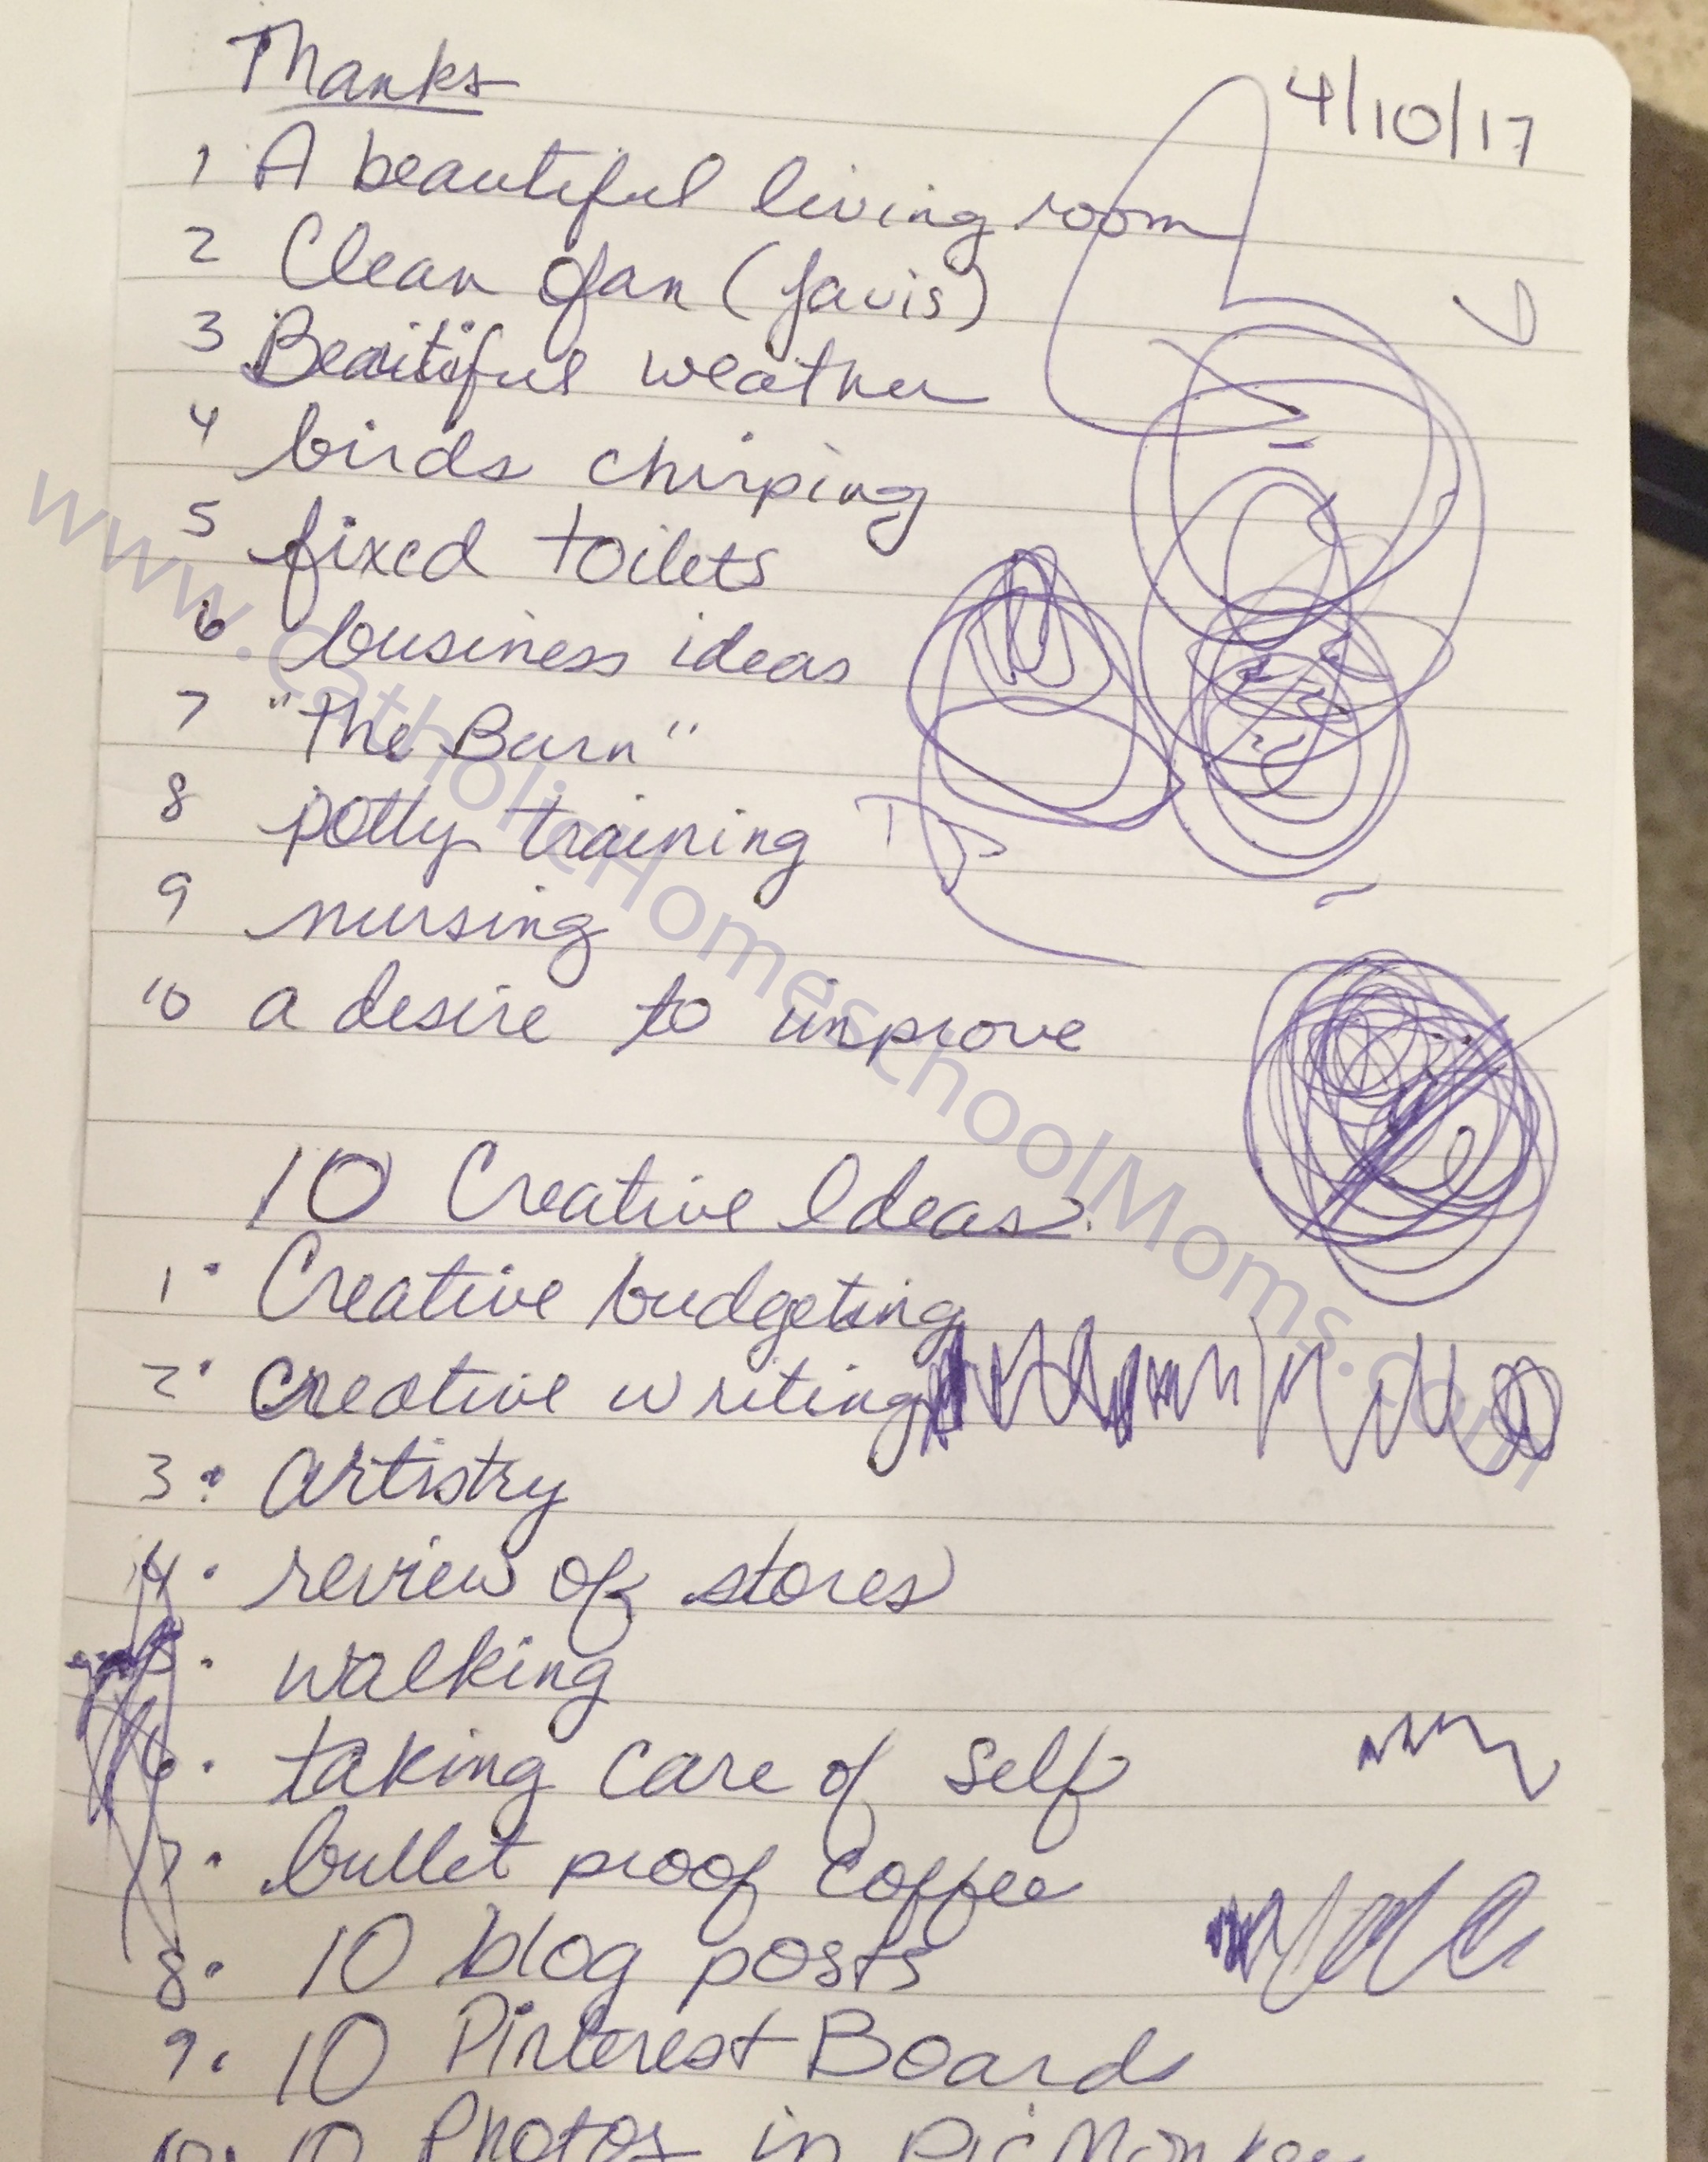 Thanks
4/10/17
1 A beautiful living room
2 Clean fan (favis)
3 Beautiful weather
4 birds chirping
5 fixed toilets
6 business ideas
7 "The Barn"
8 potty training
9 nursing
10 a desire to improve
10 Creative Ideas:
1. Creative budgeting
2. creative writing
3. artistry
4. review of stores
5. walking
6. taking care of self
7. bullet proof coffee
8. 10 blog posts
9. 10 Pinterest Boards
10. 10 Photos in PicMonkey
www.catholicHomeschoolMoms.com